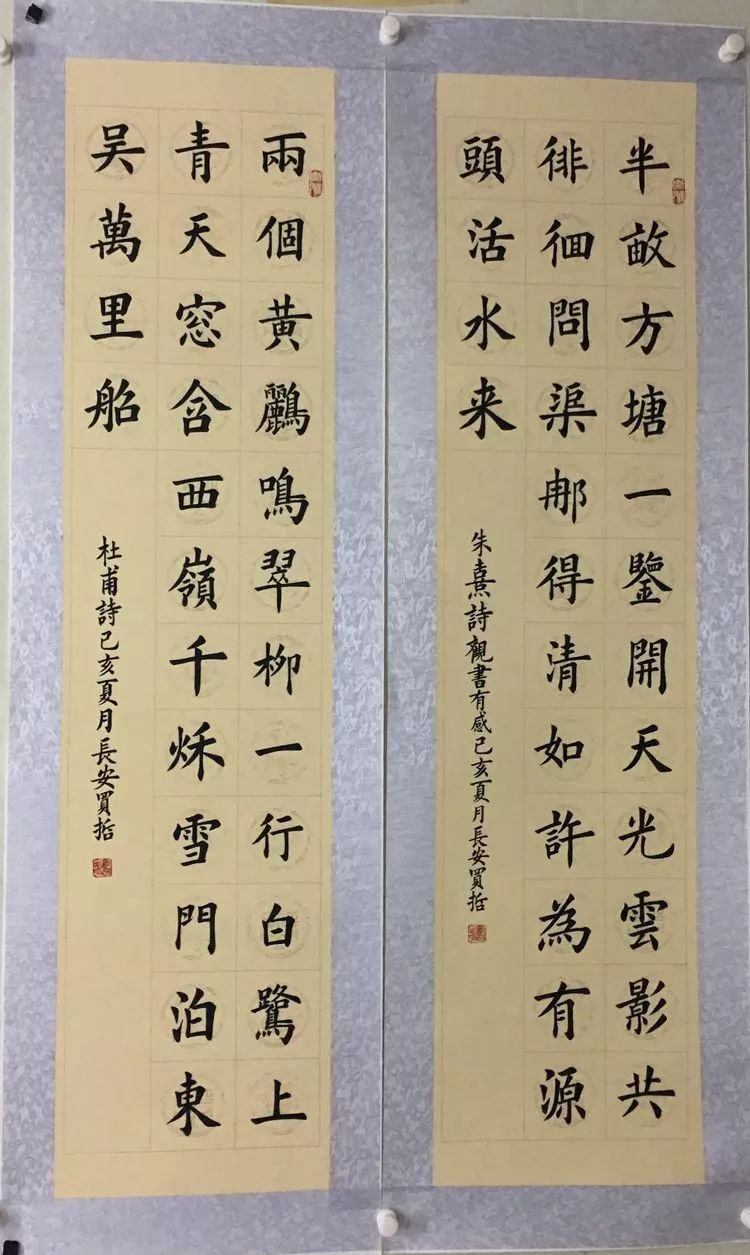 半畝方塘一鑒開天光雲影共
徘徊問渠那得清如許為有源
頭活水来
朱熹詩觀書有感己亥夏月長安賈哲
兩個黄鸝鳴翠柳一行白鷺上
青天窓含西嶺千秌雪門泊東
吴萬里船
杜甫詩己亥夏月長安賈哲